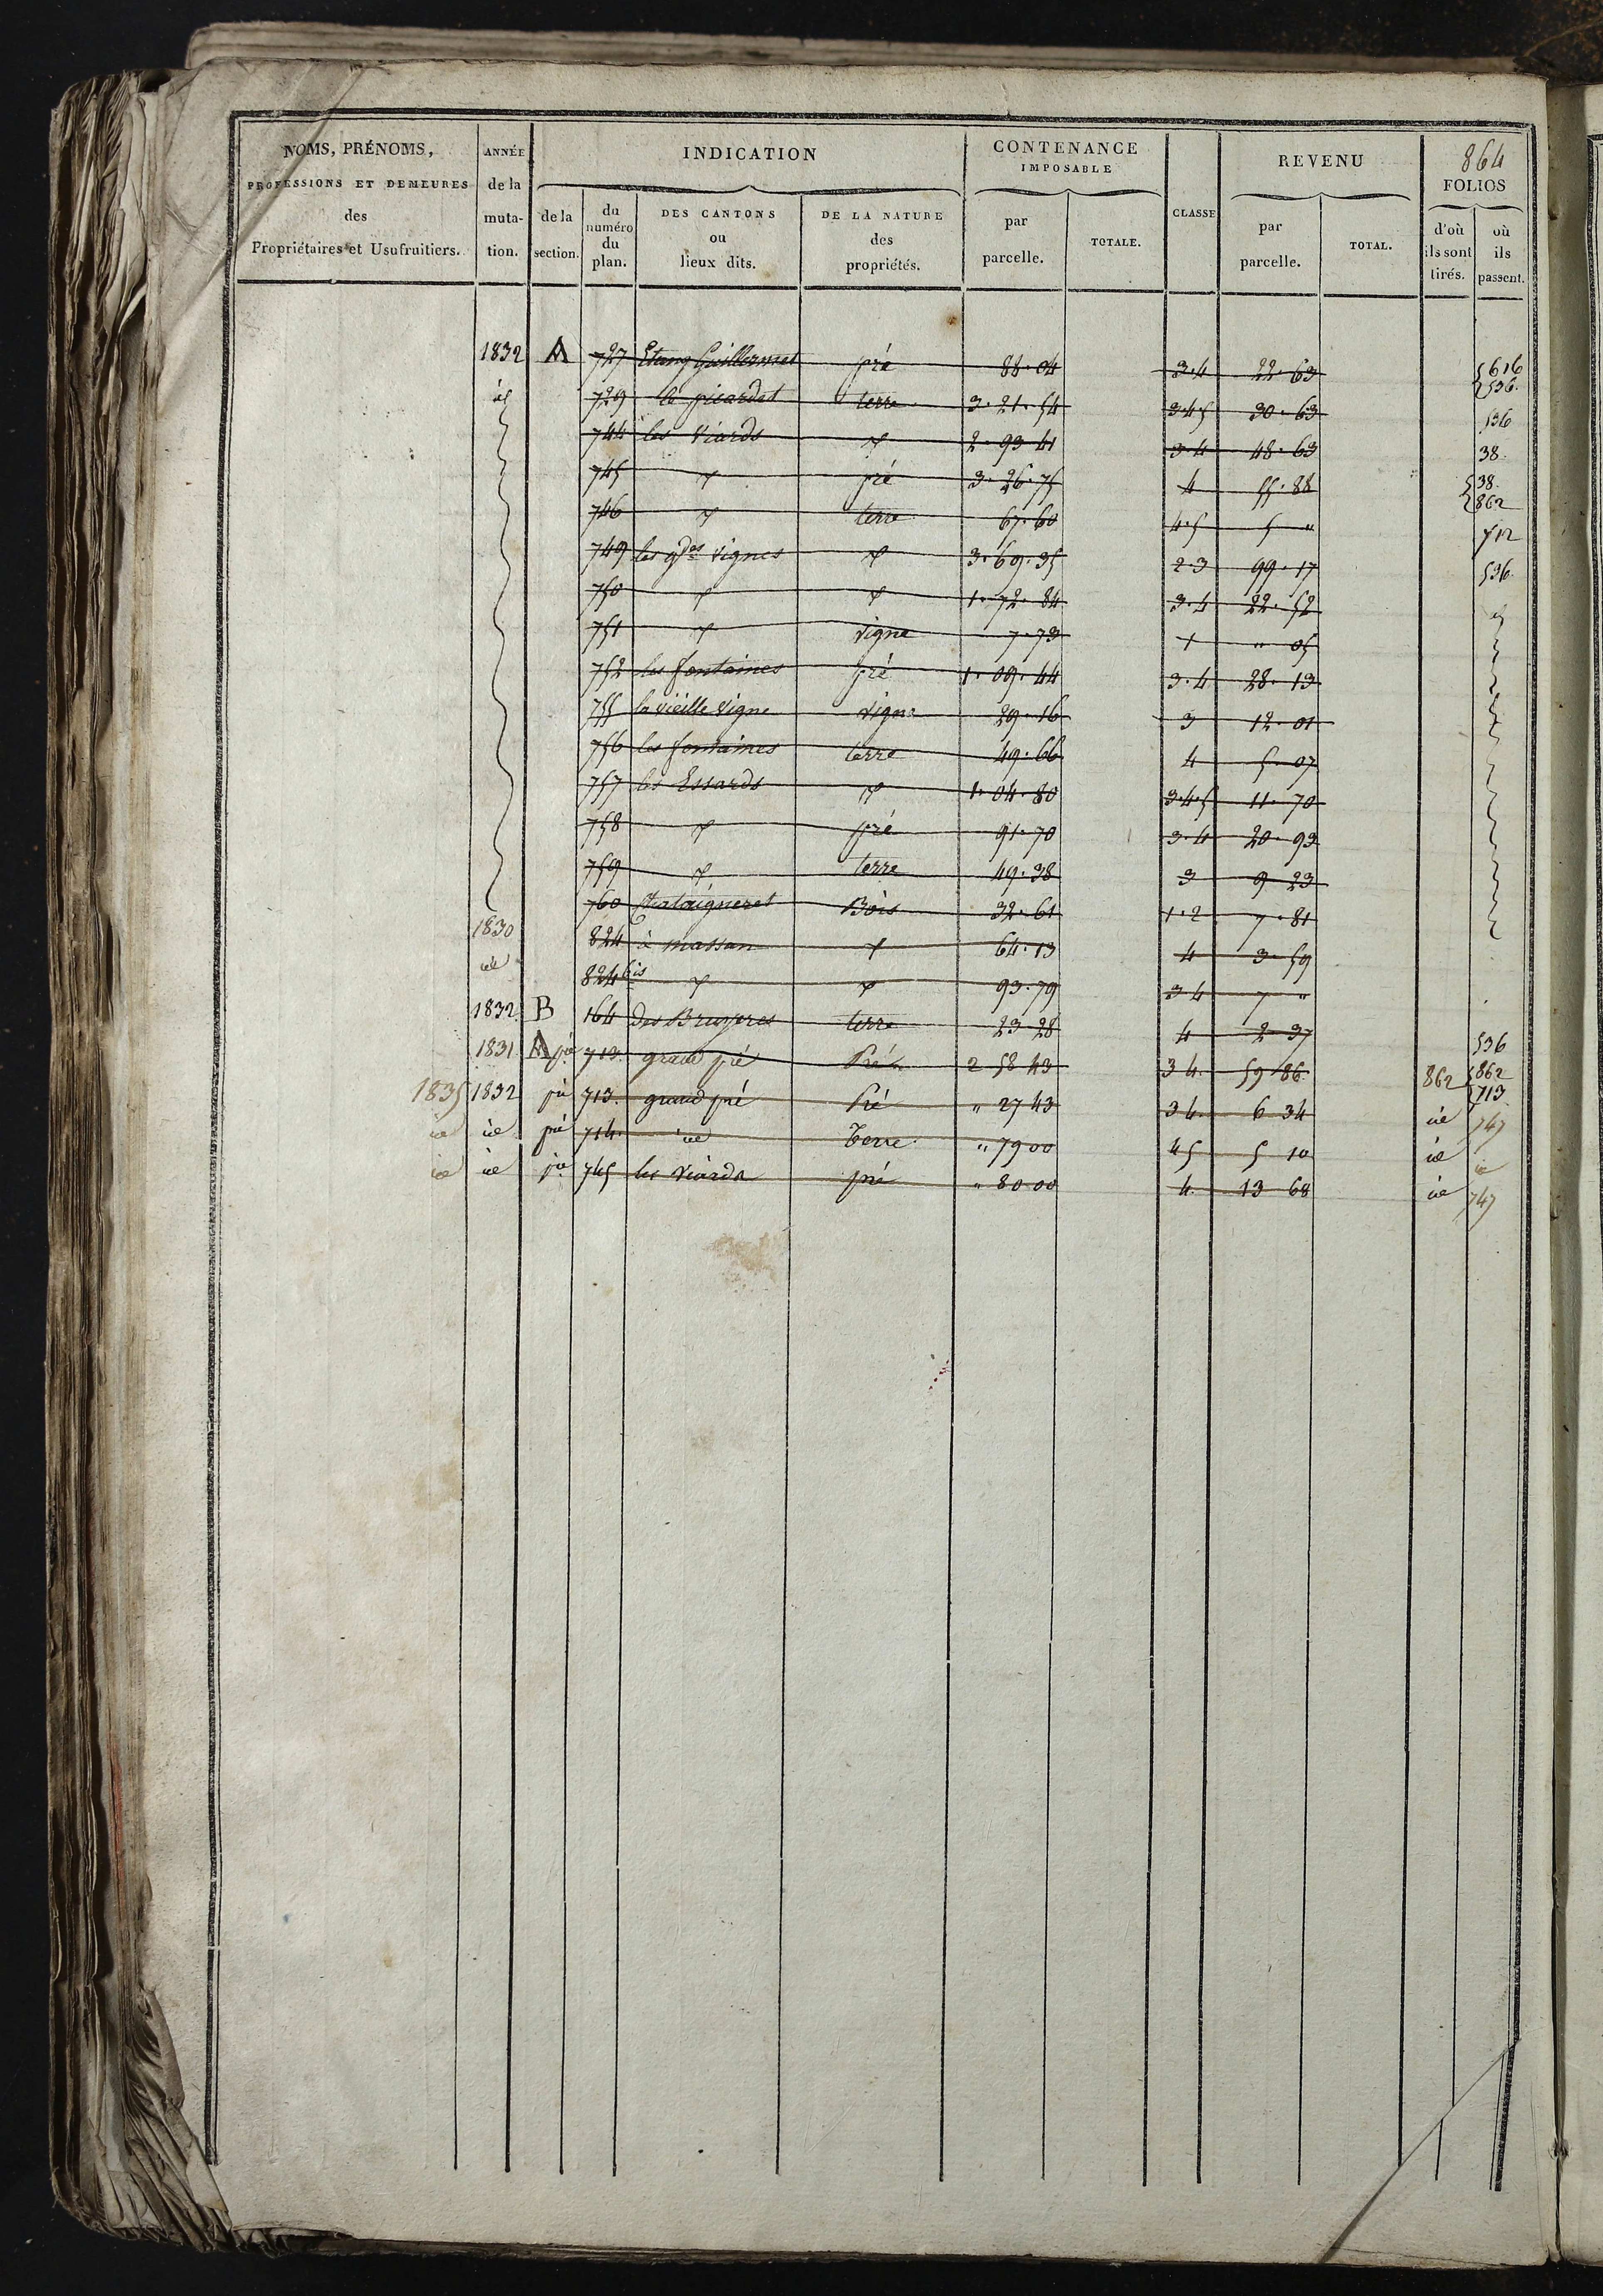 864
NOMS, PRÉNOMS, PROFESSIONS ET DEMEURES des Propriétaires et Usufruitiers.
ANNÉE de la muta- tion.
INDICATION
de la section.
du numéro du plan.
DES CANTONS ou lieux dits.
DE LA NATURE des propriétés.
CONTENANCE IMPOSABLE
par parcelle.
TOTALE.
CLASSE
REVENU
par parcelle.
TOTAL.
FOLIOS
d'où ils sont tirés.
où ils passent.
1832 A 727 Etang Guillermet pré 88.04 3.4 22.63 616 536.
id 729 le picardet terre 3.21.54 3.4.5 30.63 536
744 les Viards 2.93 41 3.4 48.63 38.
745 pré 3.26.75 4 55.88 38. 862
746 terre 67.60 4.5 5 "
749 les gdes vignes 3.69.35 2.3 99.17 536.
750 1.72.84 3.4 22.52
751 vigne 7.73 1 " 05
752 les fontaines pré 1.09.44 3.4 28.13
755 la vieille Vigne vigne 29.16 3 12.01
756 les fontaines terre 49.66 4 5.07
757 les Essards 1.04.80 3.4.5 11.70
758 pré 91.70 3.4 20.93
759 terre 49.38 3 9 23
760 Chataigneret Bois 32.61 1.2 7.81
1830 824 à massan 64.13 4 3.59
id 824 bis 93.79 3 4 7 "
1832 B 164 des Bruyeres terre 23 28 4 2 37 536
1831 A pie 713. grand pré Pré 2 58 43 3 4. 59 86. 862 862 713
1835 1832 pie 713. grand pré Pré " 27 43 3 4. 6 34 id 747
id id pie 714. id Terre " 79 00 4 5 5 10 id id
id id pie 745 les Viards pré " 80 00 4. 13 68 id 747